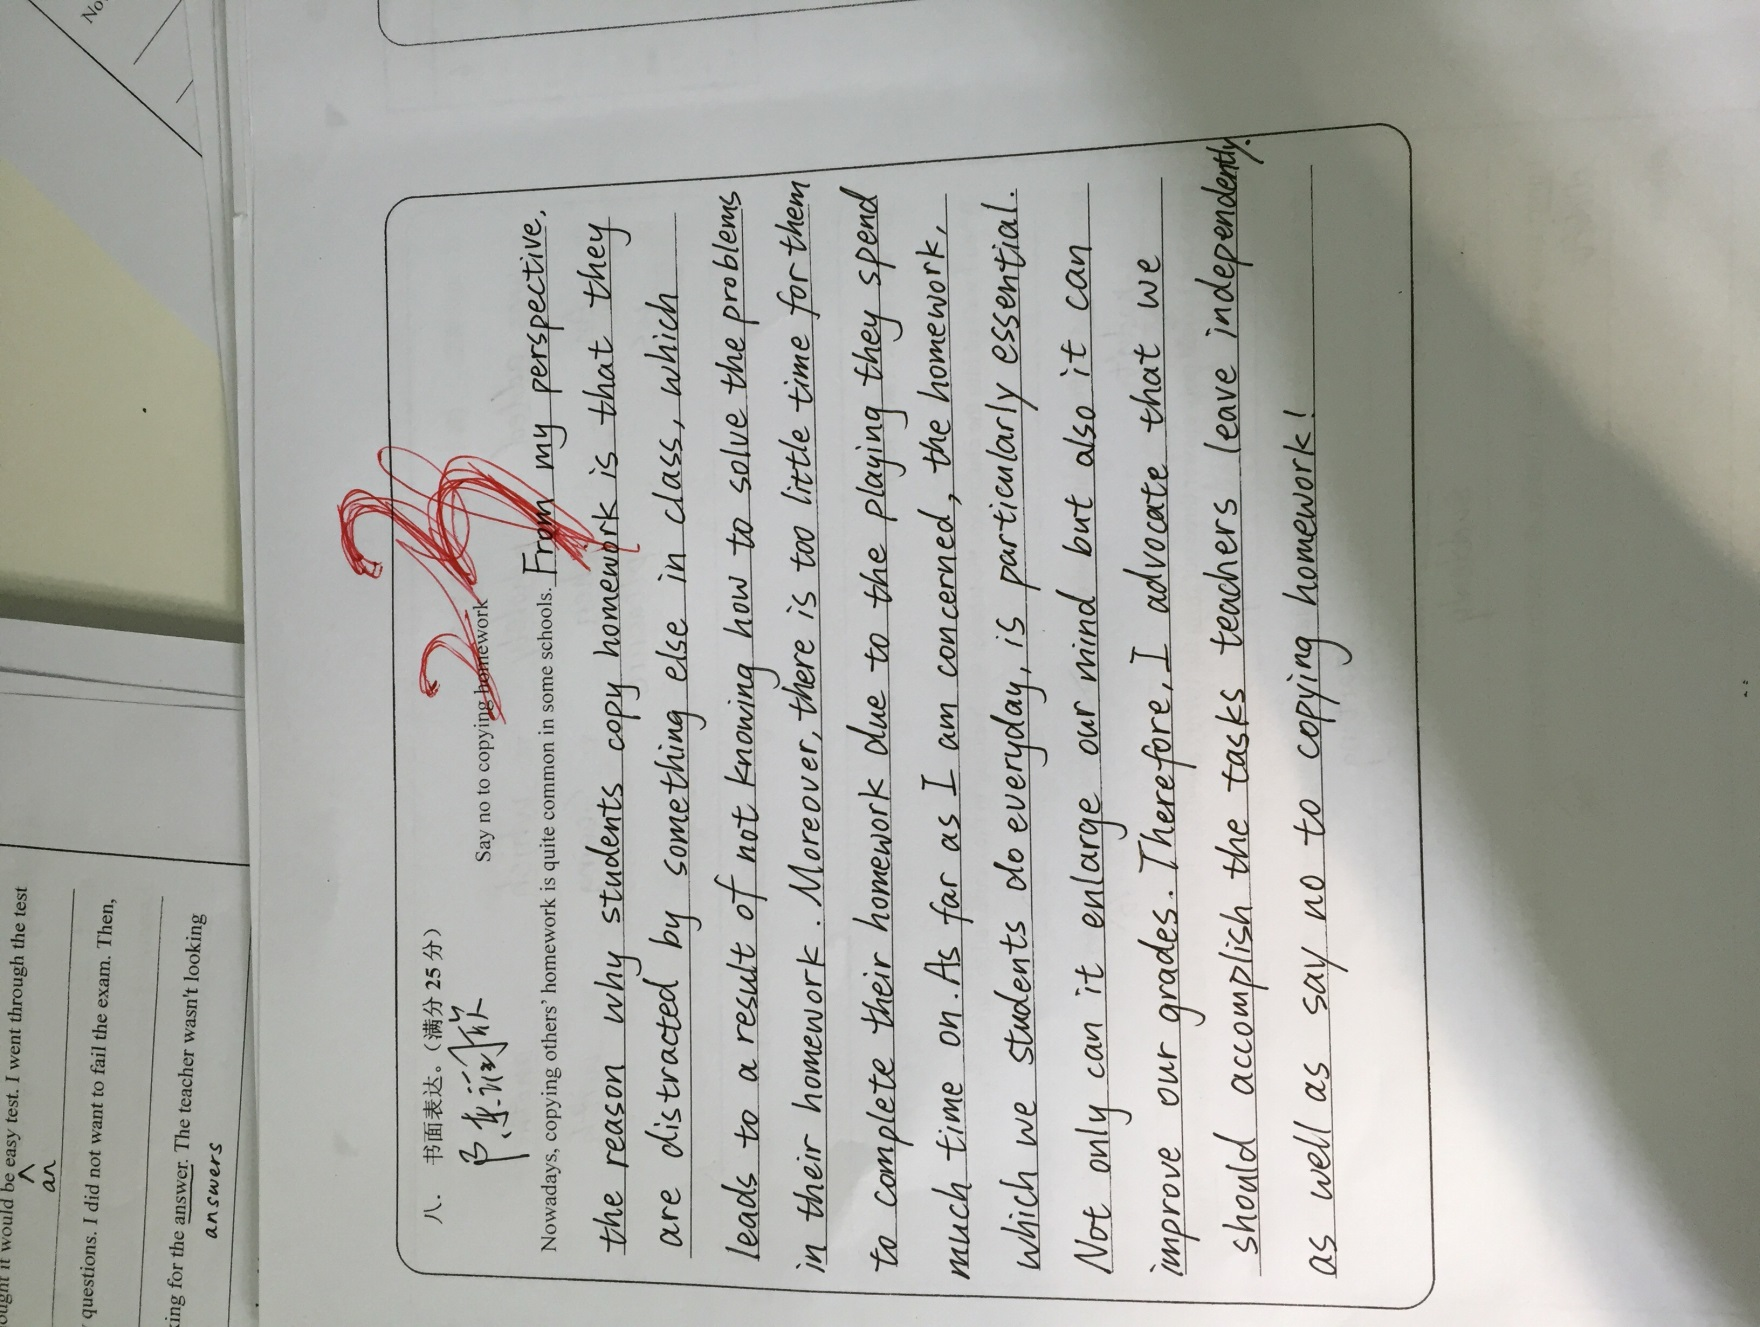 No
ought it would be easy test. I went through the test
an
questions. I did not want to fail the exam. Then,
king for the answer. The teacher wasn't looking
answers
八. 书面表达。(满分 25 分)
Say no to copying homework
Nowadays, copying others' homework is quite common in some schools. From my perspective,
the reason why students copy homework is that they
are distracted by something else in class, which
leads to a result of not knowing how to solve the problems
in their homework. Moreover, there is too little time for them
to complete their homework due to the playing they spend
much time on. As far as I am concerned, the homework,
which we students do everyday, is particularly essential.
Not only can it enlarge our mind but also it can
improve our grades. Therefore, I advocate that we
should accomplish the tasks teachers leave independently
as well as say no to copying homework!